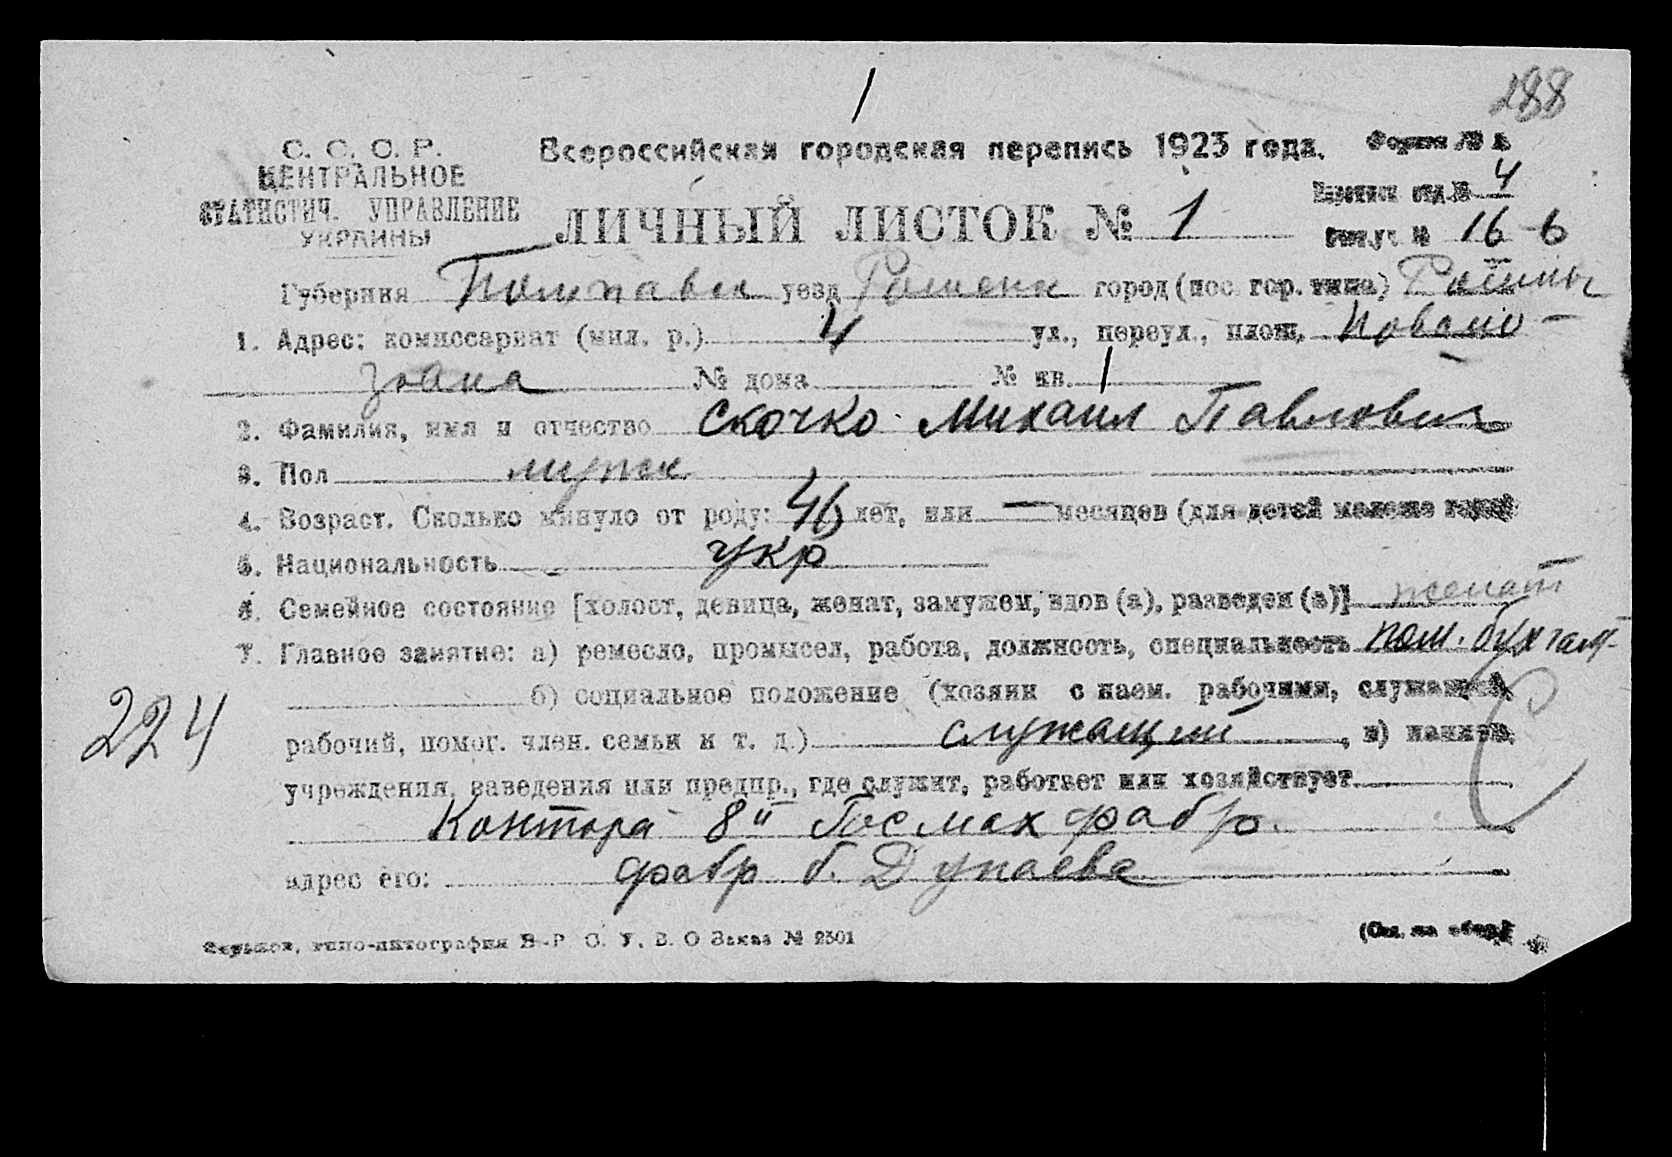 288
С. С. С. Р.
ЦЕНТРАЛЬНОЕ
СТАТИСТИЧ. УПРАВЛЕНИЕ
УКРАИНЫ
Всероссийская городская перепись 1923 года.
Форма № А
ЛИЧНЫЙ ЛИСТОК № 1
отд. № 4
№ 16 6
Губерния Полтавск уезд Роменск город (пос. гор. типа) Ромны
1. Адрес: комиссариат (мил. р.) 4 ул., переул., площ.
№ дома № кв. 1
2. Фамилия, имя и отчество Скочко Михаил Павлович
3. Пол мужск
4. Возраст. Сколько минуло от роду: 46 лет, или — месяцев (для детей моложе года)
5. Национальность укр
6. Семейное состояние [холост, девица, женат, замужем, вдов (а), разведен (а)] женат
7. Главное занятие: а) ремесло, промысел, работа, должность, специальность пом. бухгалт-
б) социальное положение (хозяин с наем. рабочими, служащий,
224
рабочий, помог. член. семьи и т. д.) служащий, в) назван.
учреждения, заведения или предпр., где служит, работает или хозяйствует
Контора 8й Гос мах фабр.
адрес его: фабр б. Дунаева
Харьков, типо-литография В-Р С. У. В. О Заказ № 2501
(См. на обор.)